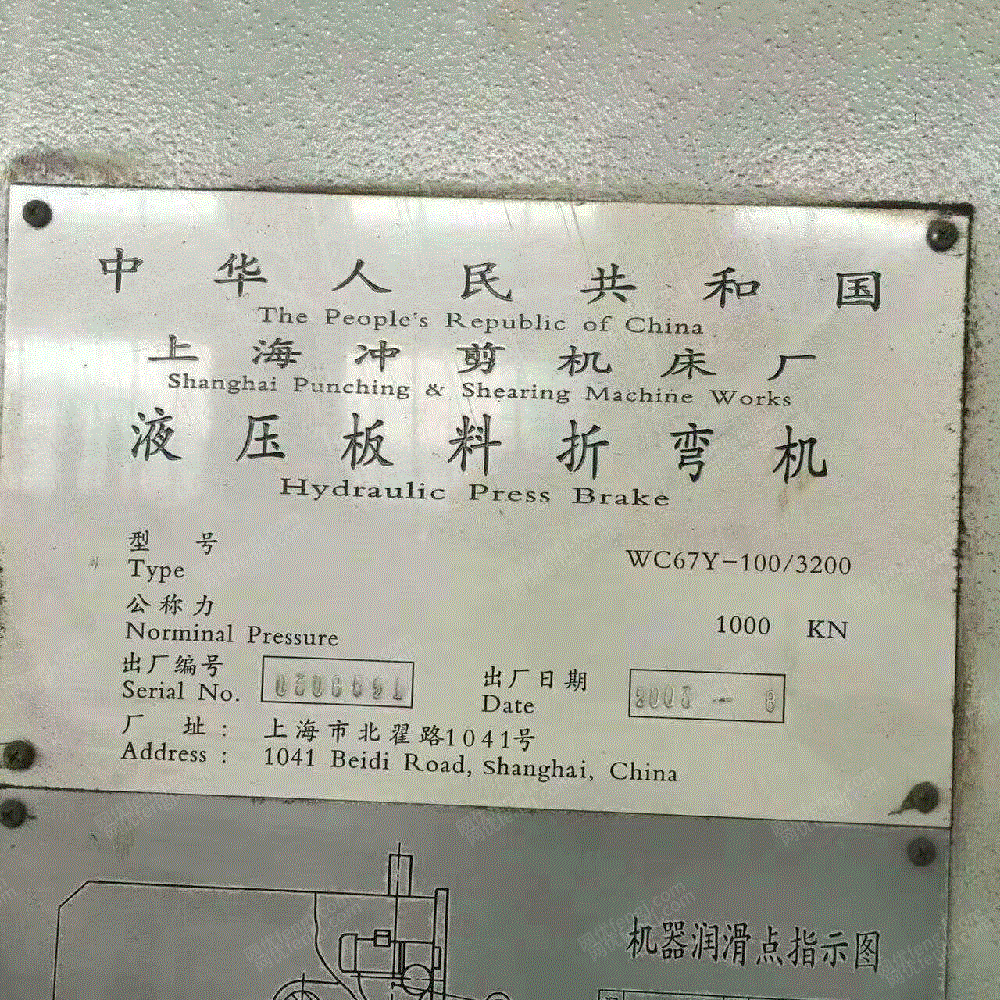 中华人民共和国
The People's Republic of China
上海冲剪机床厂
Shanghai Punching & Shearing Machine Works
液压板料折弯机
Hydraulic Press Brake
型 号 WC67Y-100/3200
Type
公称力 1000 KN
Norminal Pressure
出厂编号 出厂日期
Serial No. Date
厂 址： 上海市北翟路1041号
Address： 1041 Beidi Road, Shanghai, China
机器润滑点指示图